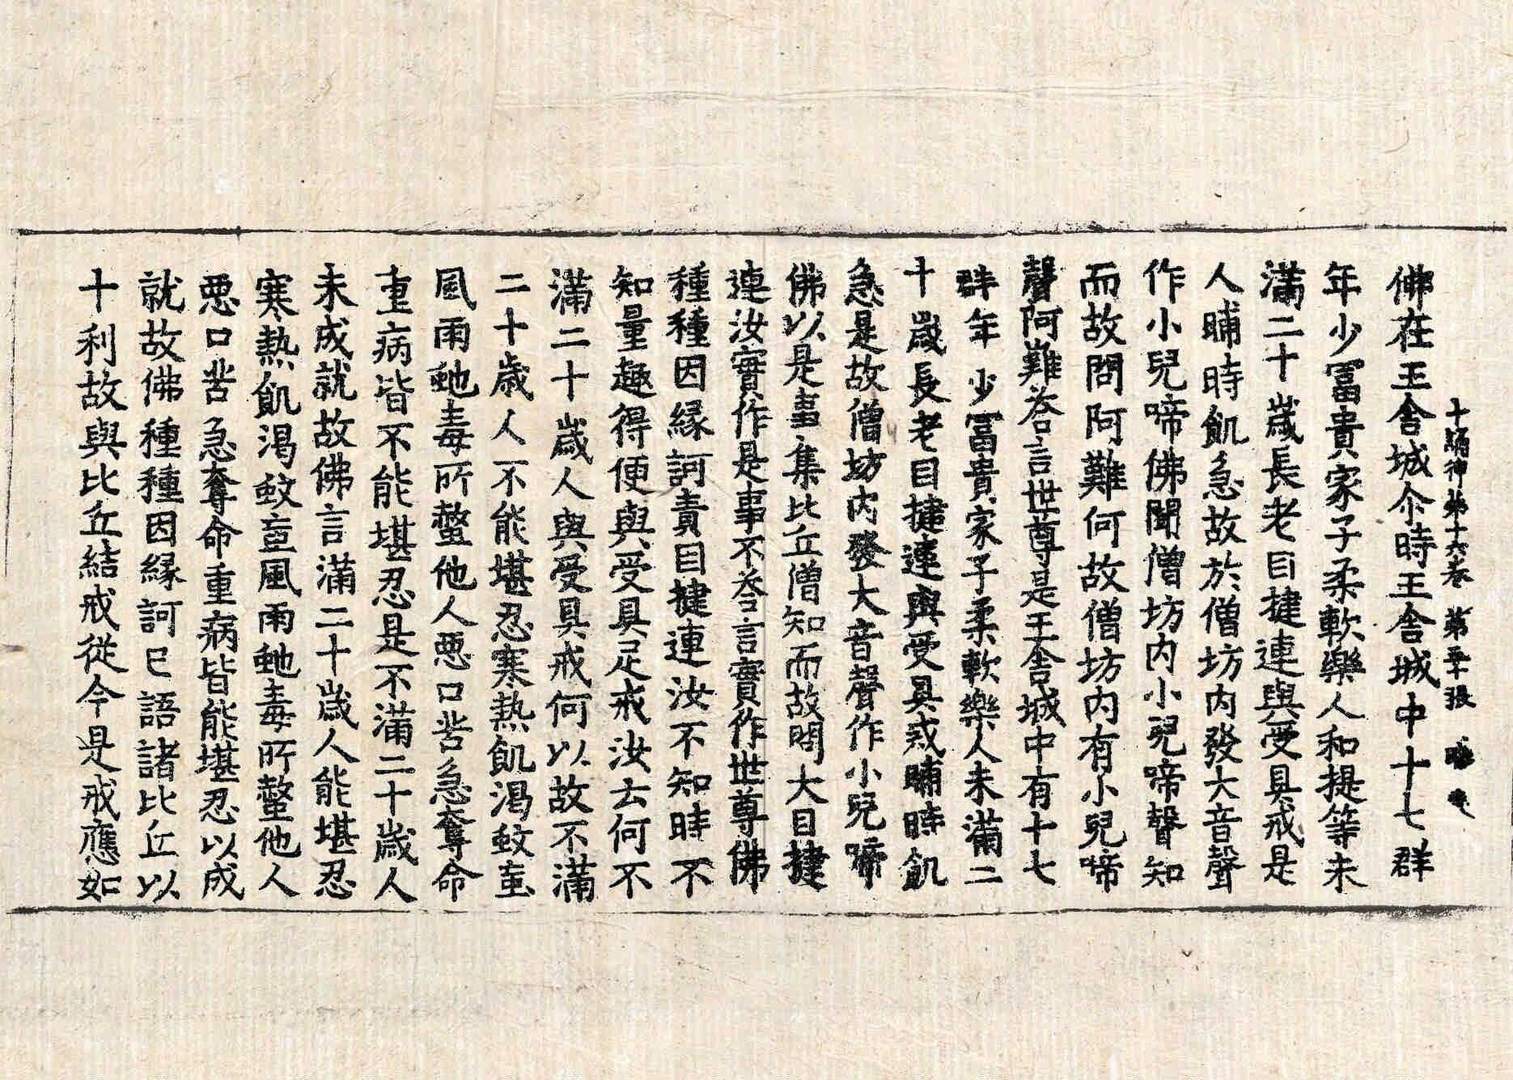 十誦律第十六卷 第五十張
佛在王舍城尒時王舍城中十七群
年少冨貴家子柔軟樂人和提等未
滿二十歲長老目揵連與受具戒是
人晡時飢急故於僧坊內發大音聲
作小兒啼佛聞僧坊内小兒啼聲知
而故問阿難何故僧坊内有小兒啼
聲阿難荅言世尊是王舍城中有十七
群年少冨貴家子柔軟樂人未滿二
十歲長老目揵連與受具戒晡時飢
急是故僧坊内發大音聲作小兒啼
佛以是事集比丘僧知而故問大目揵
連汝實作是事不荅言實作世尊佛
種種因縁訶責目揵連汝不知時不
知量趣得便與受具足戒汝云何不
滿二十歲人與受具戒何以故不滿
二十歲人不能堪忍寒熱飢渴蚊䖟
風雨虵毒所螫他人惡口苦急奪命
重病皆不能堪忍是不滿二十歲人
未成就故佛言滿二十歲人能堪忍
寒熱飢渴蚊䖟風雨虵毒所螫他人
惡口苦急奪命重病皆能堪忍以成
就故佛種種因縁訶已語諸比丘以
十利故與比丘結戒從今是戒應如